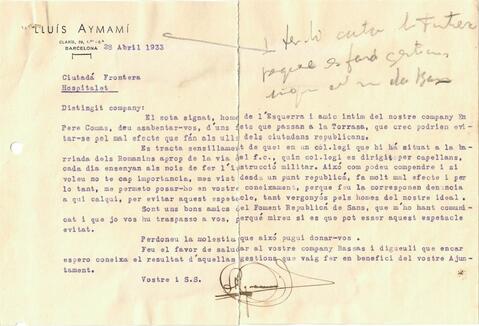 LLUÍS AYMAMÍ
CLARIS, 28, 1.er-2.a
BARCELONA
28 Abril 1933
Ciutadà Frontera
Hospitalet
Distingit company:
El sota signat, home de l'Esquerra i amic intim del nostre company En
Pere Comas, deu asabentar-vos, d'uns fets que passan a la Torrasa, que crec podrien evi-
tar-se pel mal efecte que fán als ulls dels ciutadans republicans.
Es tracta sensillament de que: en un col.legi que hi há situat a la bar-
riada dels Romanins aprop de la via del f.c., quin col.legi es dirigit per capellans,
cada dia ensenyan als nois de fer l'instrucció militar. Aixó com podeu compendre i si
voleu no te cap importancia, mes vist desda un punt republicá, fa molt mal efecte i per
lo tant, me permeto posar-ho en vostre coneixament, perque feu la corresponen denuncia
a qui calqui, per evitar aquest espectacle, tant vergonyós pels homes del nostre ideal.
Son uns bons amics del Foment Republicá de Sans, que m'ho hant comuni-
cat i que jo vos hu traspasso a vos, perqué mireu si es que pot esser aquest espectacle
evitat.
Perdoneu la molestia que aixó pugui donar-vos.
Feu el favor de saludar al vostre company Bassas i digueuli que encar
espero coneixa el resultat d'aquellas gestions que vaig fer en benefici del vostre Ajun-
tament.
Vostre i S.S.